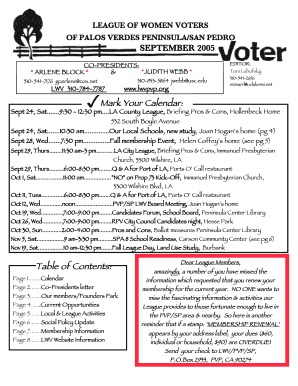 LEAGUE OF WOMEN VOTERS
OF PALOS VERDES PENINSULA/SAN PEDRO
SEPTEMBER 2005
Voter
CO-PRESIDENTS:
* ARLENE BLOCK * & *JUDITH WEBB *
LWV 310-784-7787 www.lwvpvp.org
EDITOR:
✓ Mark Your Calendar:
Sept 24, Sat.......9:30 - 12:30 pm......LA County League, Briefing Pros & Cons, Hollenbeck Home
532 South Boyle Avenue
Sept 24, Sat.......10:30 am......Our Local Schools, new study, Joan Hogan's home (pg 4)
Sept 28, Wed......7:30 pm......Fall membership Event, Helen Coffey's home (see pg 5)
Sept 29, Thurs...11:30 am-3 pm......LA City League, Briefing Pros & Cons, Immanuel Presbyterian
Church, 3300 Wilshire, LA
Sept 29, Thurs...6:00-8:30 pm......Q & A for Port of LA, Ports O' Call restaurant
Oct 1, Sat.......11:00 am......"NO" on Prop 75 Kick-Off, Immanuel Presbyterian Church,
3300 Wilshire Blvd, LA
Oct 11, Tues.......6:00-8:30 pm......Q & A for Port of LA, Ports O' Call restaurant
Oct 12, Wed......noon......PVP/SP LWV Board Meeting, Joan Hogan's home
Oct 19, Wed......7:00-9:00 pm......Candidates Forum, School Board, Peninsula Center Library
Oct 26, Wed......7:00-9:00 pm......RPV City Council Candidates night, Hesse Park
Oct 30, Sun.......2:00-4:00 pm......Pros and Cons, Ballot measures Peninsula Center Library
Nov 5, Sat.......9 am-3:30 pm......SPA 8 School Readiness, Carson Community Center (see pg 6)
Nov 19, Sat......10 am-12:30 pm......Fall League Day, Land Use Study, Burbank
Table of Contents:
Page 1 ......Calendar
Page 2 ......Co-Presidents letter
Page 3 ......Our members/Founders Park
Page 4 ......Current Opportunities
Page 5 ......Local & League Activities
Page 6 ......Social Policy Update
Page 7 ......Membership Information
Page 8 ......LWV Website Information
Dear League Members,
amazingly, a number of you have missed the
information which requested that you renew your
membership for the current year. NO ONE wants to
miss the fascinating information & activities our
League provides to those fortunate enough to live in
the PVP/SP area & nearby. So here is another
reminder that if a stamp- 'MEMBERSHIP RENEWAL'
appears by your address label, your dues ($60,
individual or household, $90) are OVERDUE!
Send your check to LWV/PVP/SP,
P.O.Box 2933, PVP, CA 90274